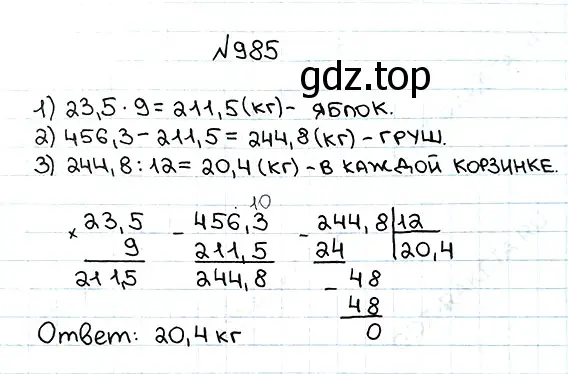 №985
gdz.top
1) 23,5 · 9 = 211,5 (кг) - яблок.
2) 456,3 - 211,5 = 244,8 (кг) - груш.
3) 244,8 : 12 = 20,4 (кг) - в каждой корзинке.
· 10
× 23,5 - 456,3 - 244,8 | 12
9 211,5 24 20,4
211,5 244,8 - 48
48
0
Ответ: 20,4 кг